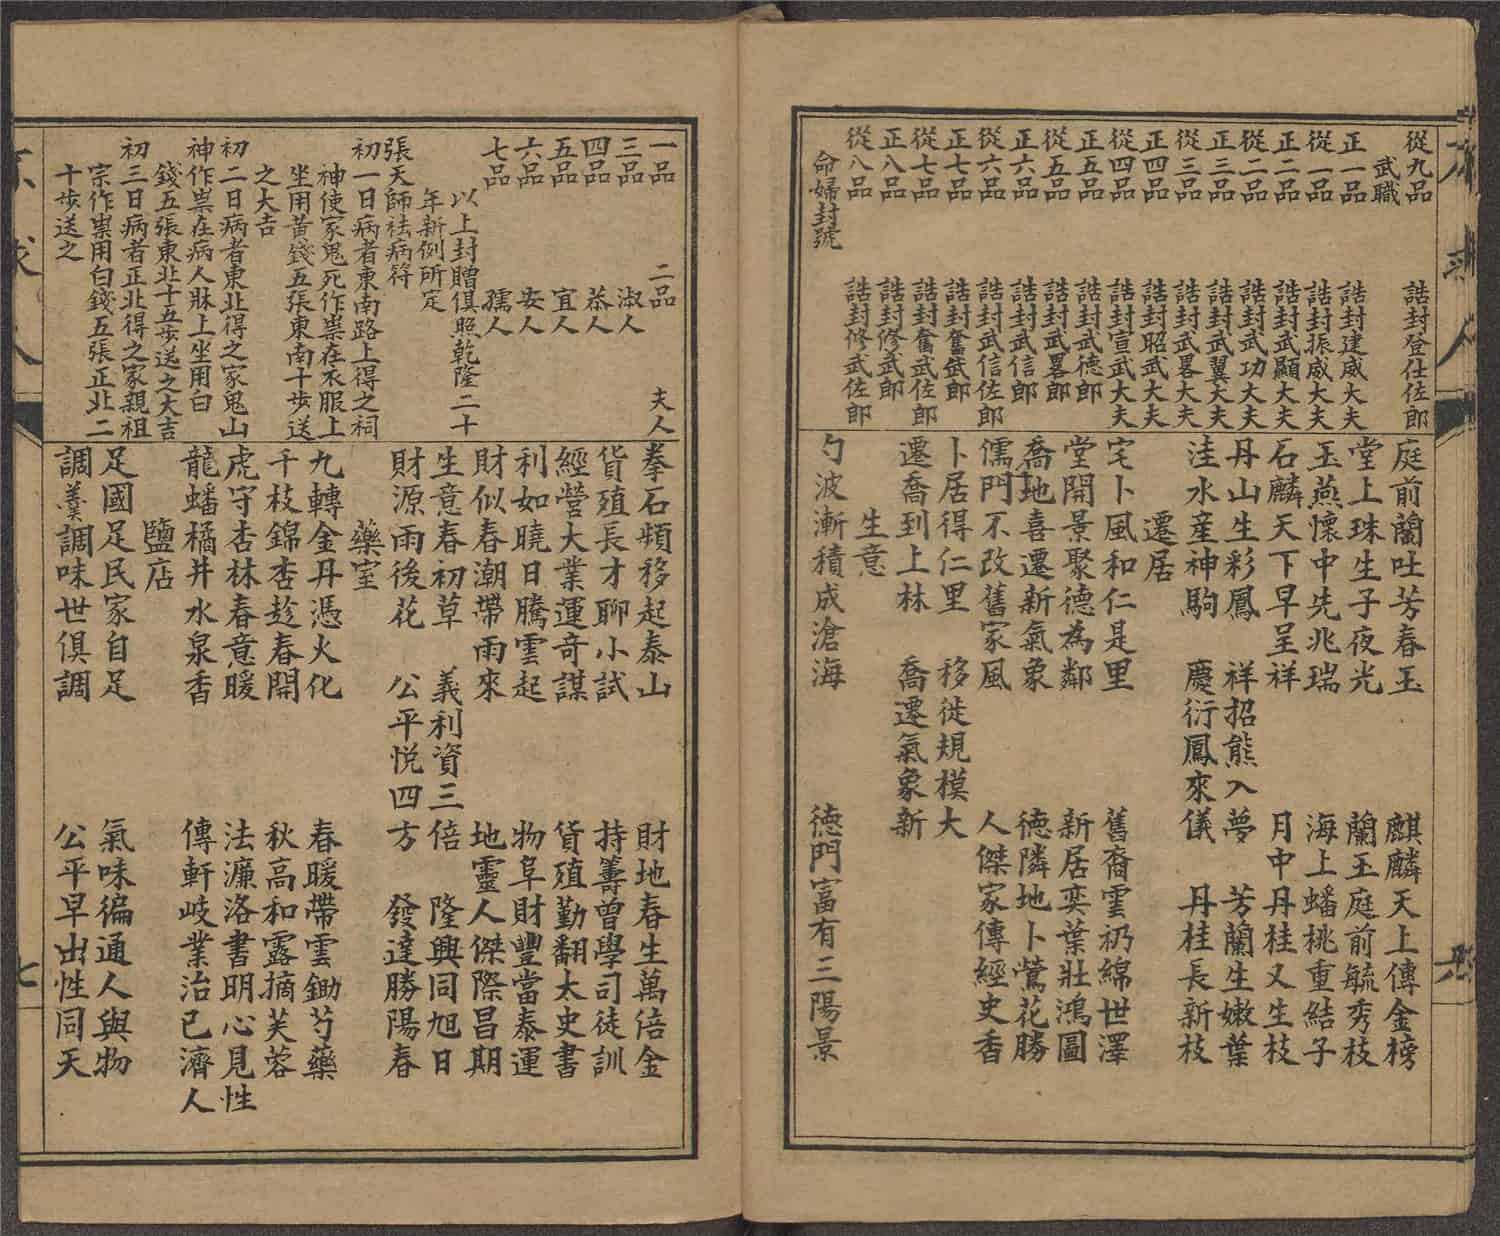 從九品　誥封登仕佐郎
武職
正一品　誥封建威大夫
從一品　誥封振威大夫
正二品　誥封武顯大夫
從二品　誥封武功大夫
正三品　誥封武翼大夫
從三品　誥封武畧大夫
正四品　誥封昭武大夫
從四品　誥封宣武大夫
正五品　誥封武德郎
從五品　誥封武畧郎
正六品　誥封武信郎
從六品　誥封武信佐郎
正七品　誥封奮武郎
從七品　誥封奮武佐郎
正八品　誥封修武郎
從八品　誥封修武佐郎
命婦封號
庭前蘭吐芳春玉　麒麟天上傳金榜
堂上珠生子夜光　蘭玉庭前毓秀枝
玉燕懷中先兆瑞　海上蟠桃重結子
石麟天下早呈祥　月中丹桂又生枝
丹山生彩鳳　祥招熊入夢　芳蘭生嫩葉
洼水産神駒　慶衍鳳來儀　丹桂長新枝
遷居
宅卜風和仁是里　舊裔雲礽綿世澤
堂開景聚德為鄰　新居奕葉壯鴻圖
喬地喜遷新氣象　德隣地卜鶯花勝
儒門不改舊家風　人傑家傳經史香
卜居得仁里　移徙規模大
遷喬到上林　喬遷氣象新
生意
勺波漸積成滄海　德門富有三陽景
一品　二品　夫人
三品　淑人
四品　恭人
五品　宜人
六品　安人
七品　孺人
以上封贈俱照乾隆二十
年新例所定
張天師祛病符
初一日病者東南路上得之祠
神使家鬼死作祟在衣服上
坐用黃錢五張東南十步送
之大吉
初二日病者東北得之家鬼山
神作祟在病人牀上坐用白
錢五張東北十五步送之大吉
初三日病者正北得之家親祖
宗作祟用白錢五張正北二
十步送之
拳石頻移起泰山　財地春生萬倍金
貨殖長才聊小試　持籌曾學司徒訓
經營大業運奇謀　貨殖勤翻太史書
利如曉日騰雲起　物阜財豐當泰運
財似春潮帶雨來　地靈人傑際昌期
生意春初草　義利資三倍　隆興同旭日
財源雨後花　公平悅四方　發達勝陽春
藥室
九轉金丹憑火化　春暖帶雲鋤芍藥
千枝錦杏趁春開　秋高和露摘芙蓉
虎守杏林春意暖　法濂洛書明心見性
龍蟠橘井水泉香　傳軒岐業治已濟人
鹽店
足國足民家自足　氣味徧通人與物
調羹調味世俱調　公平早出性同天